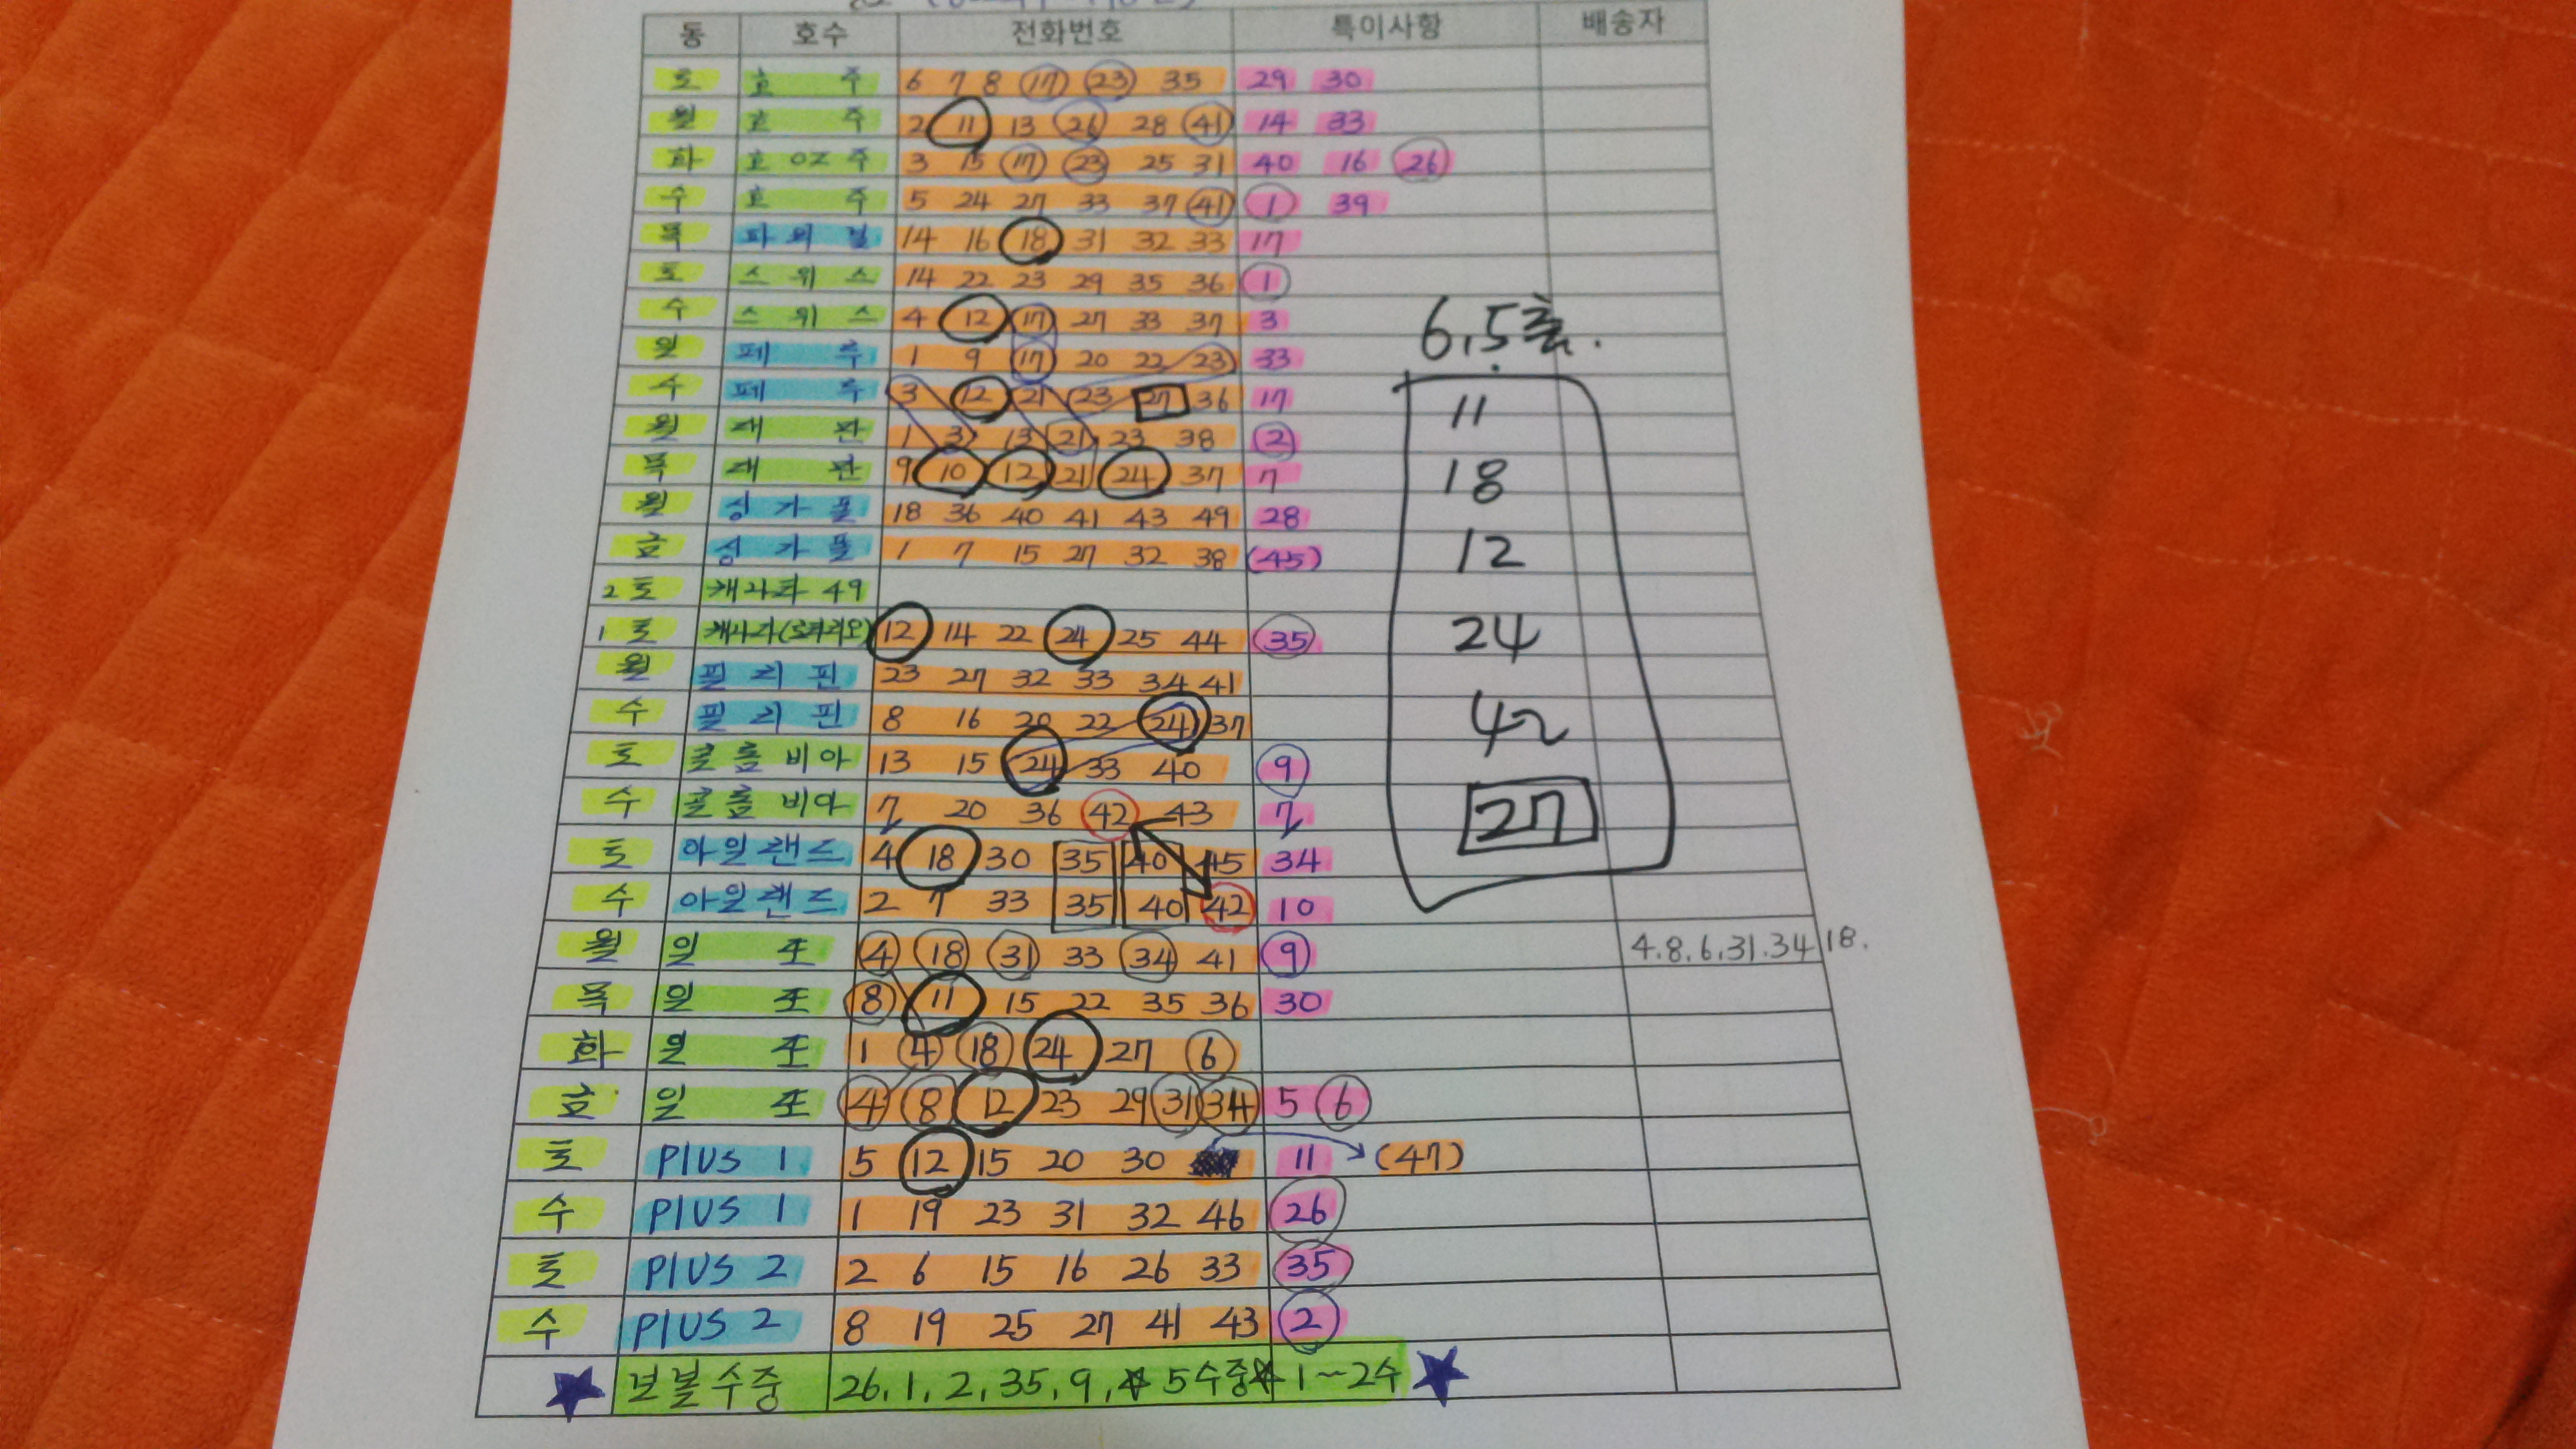 동 호수 전화번호 특이사항 배송자
토 호 주 6 7 8 17 23 35 29 30
월 호 주 2 11 13 26 28 41 14 33
화 호 OZ 주 3 15 17 23 25 31 40 16 26
수 호 주 5 24 27 33 37 41 1 39
목 파워볼 14 16 18 31 32 33 17
토 스위스 14 22 23 29 35 36 1
수 스위스 4 12 17 27 33 37 3
월 페 루 1 9 17 20 22 23 33
수 페 루 3 12 21 23 27 36 17
월 재 판 1 3 13 21 23 38 2
목 재 판 9 10 12 21 24 37 7
월 싱가폴 18 36 40 41 43 49 28
금 싱가폴 1 7 15 27 32 38 (45)
2토 캐나다 49
1토 12 14 22 24 25 44 35
월 필리핀 23 27 32 33 34 41
수 필리핀 8 16 20 22 24 37
토 콜롬비아 13 15 24 33 40 9
수 콜롬비아 7 20 36 42 43 7
토 아일랜드 4 18 30 35 40 45 34
수 아일랜드 2 7 33 35 40 42 10
월 일 본 4 18 31 33 34 41 9 4.8.6.31.34 18.
목 일 본 8 11 15 22 35 36 30
화 일 본 1 4 18 24 27 6
금 일 본 4 8 12 23 29 31 34 5 6
토 PlUS 1 5 12 15 20 30 11 (47)
수 PlUS 1 1 19 23 31 32 46 26
토 PlUS 2 2 6 15 16 26 33 35
수 PlUS 2 8 19 25 27 41 43 2
★ 보볼수중 26,1,2,35,9,☆ 5수중☆ 1~2수 ★
6,5출.
11
18
12
24
42
27